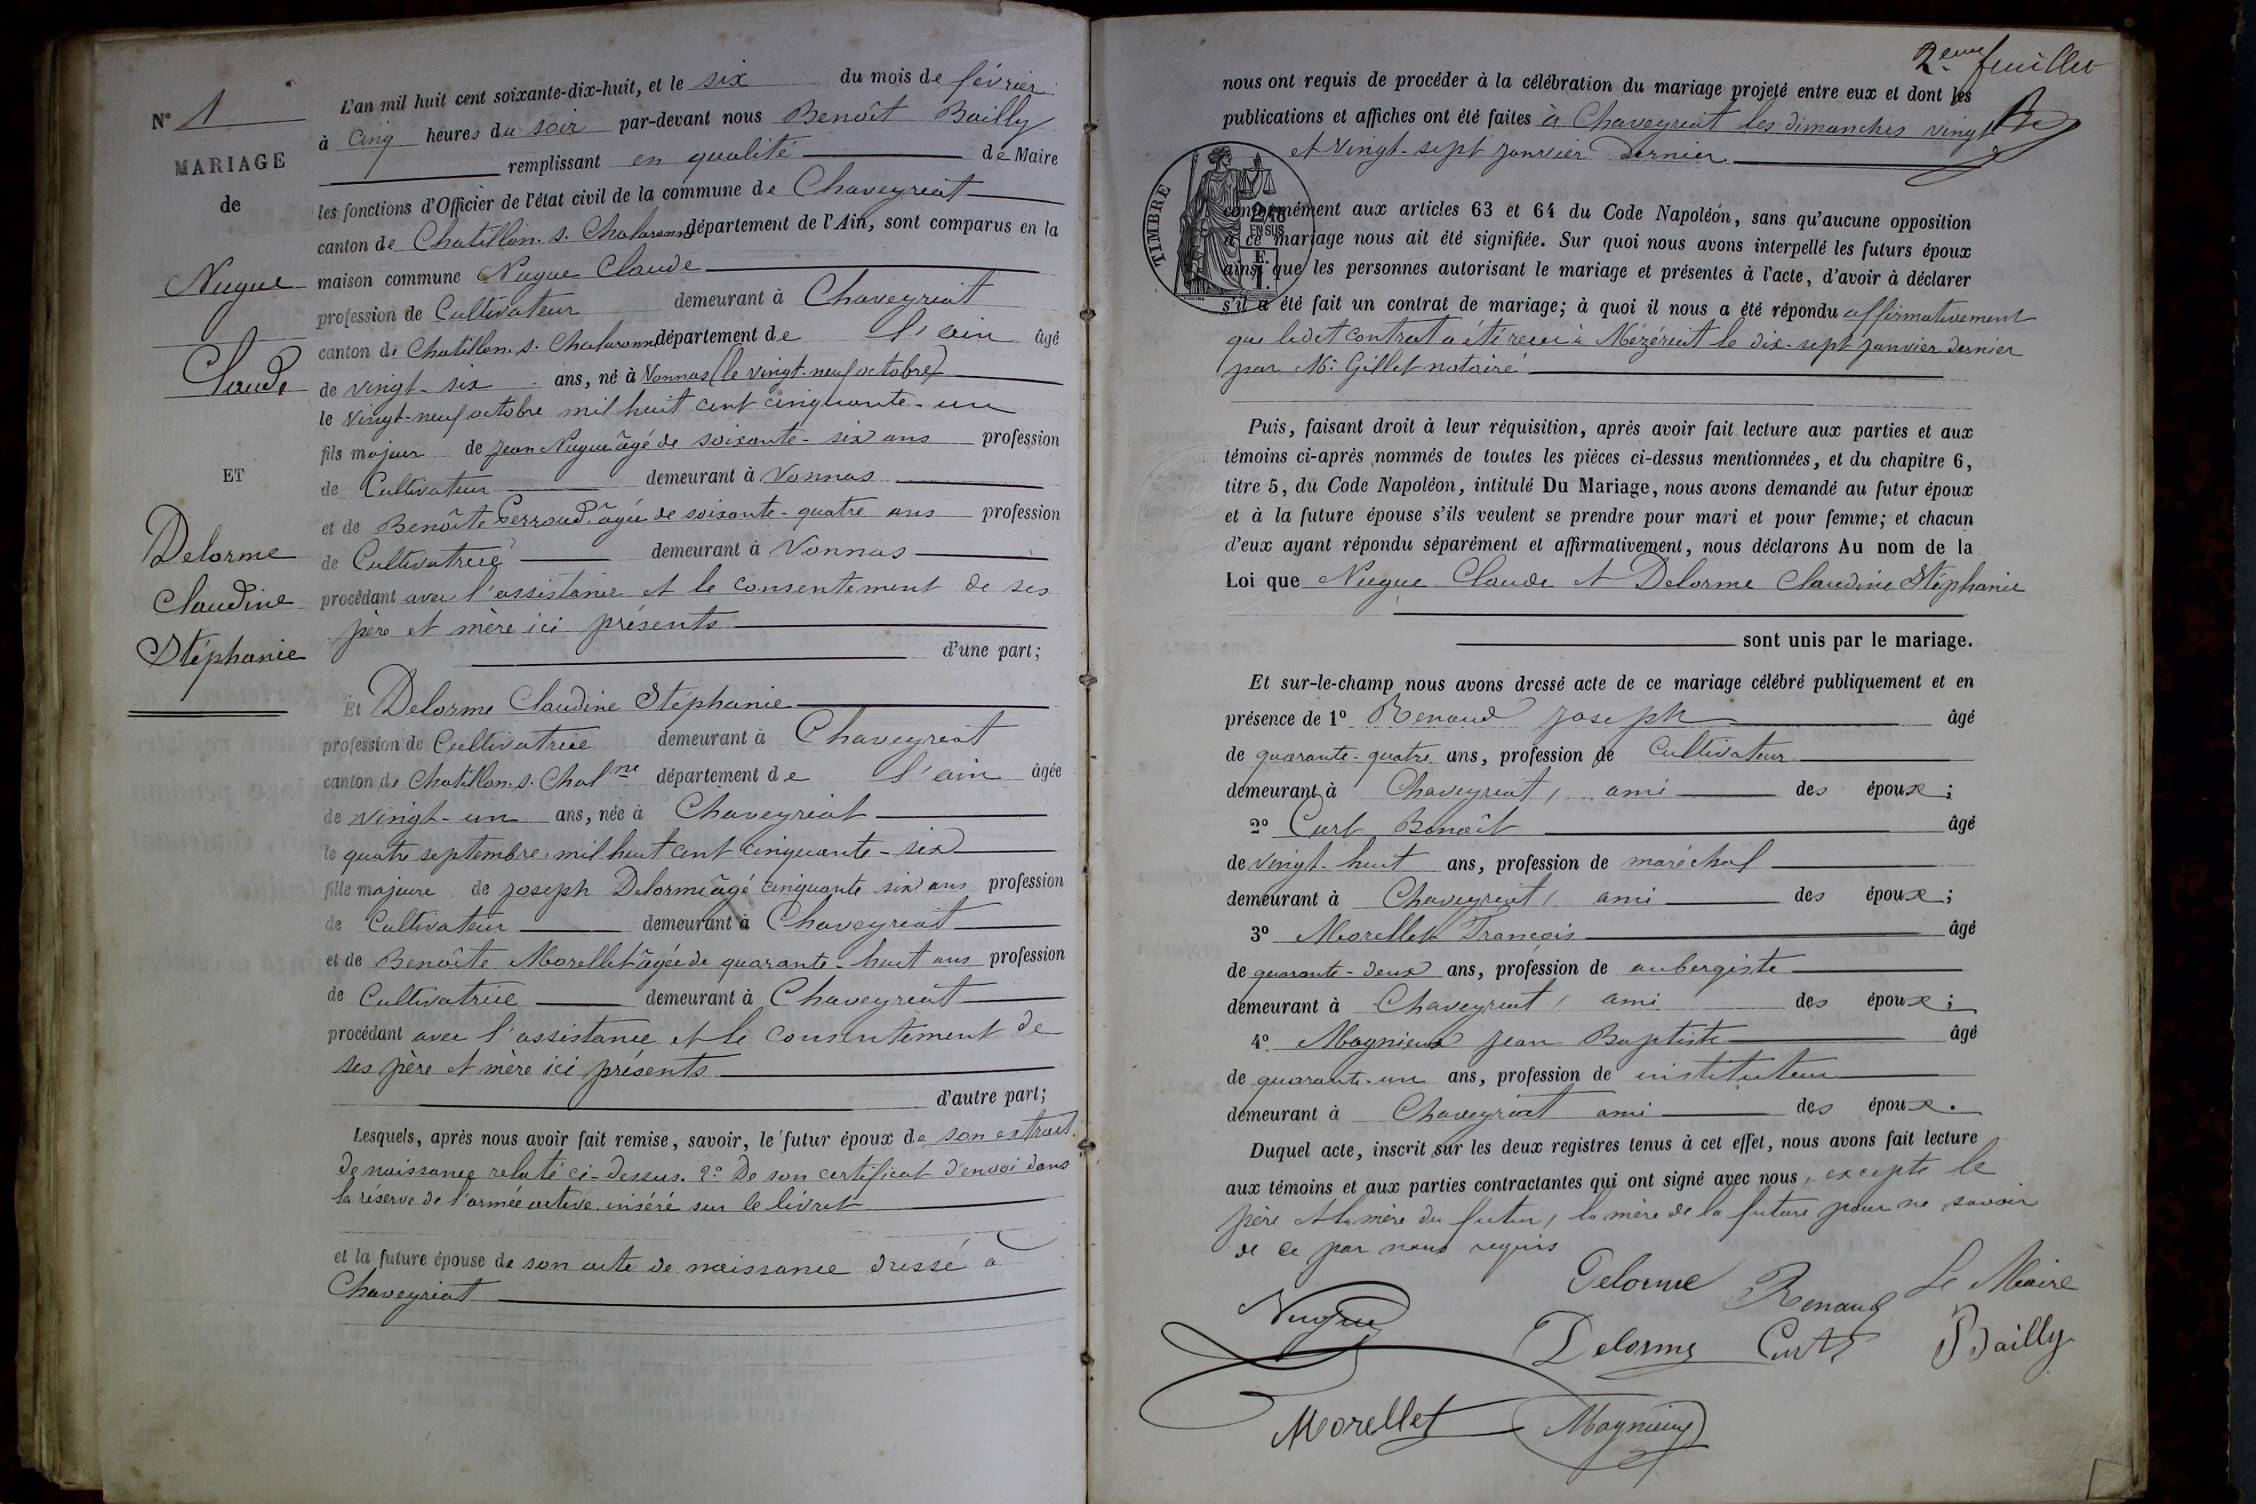 N° 1
MARIAGE
de
Nugue
Claude
ET
Delorme
Claudine
Stéphanie
L'an mil huit cent soixante-dix-huit, et le six du mois de février
à cinq heures du soir par-devant nous Benoît Bailly
remplissant en qualité de Maire
les fonctions d'Officier de l'état civil de la commune de Chaveyriat
canton de Chatillon. s. Chalaronne département de l'Ain, sont comparus en la
maison commune Nugue Claude
profession de Cultivateur demeurant à Chaveyriat
canton de Chatillon. s. Chalaronne département de l'ain âgé
de vingt-six ans, né à Vonnas (le vingt-neuf octobre)
le vingt-neuf octobre mil huit cent cinquante-un
fils majeur de Jean Nugue âgé de soixante-six ans profession
de Cultivateur demeurant à Vonnas
et de Benoîte Perroud, âgée de soixante-quatre ans profession
de Cultivatrice demeurant à Vonnas
procédant avec l'assistance et le consentement de ses
père et mère ici présents
d'une part;
Et Delorme Claudine Stéphanie
profession de Cultivatrice demeurant à Chaveyriat
canton de Chatillon. s. Chalne département de l'ain âgée
de vingt-un ans, née à Chaveyriat
le quatre septembre mil huit cent cinquante-six
fille majeure de Joseph Delorme âgé cinquante six ans profession
de Cultivateur demeurant à Chaveyriat
et de Benoîte Morellet âgée de quarante-huit ans profession
de Cultivatrice demeurant à Chaveyriat
procédant avec l'assistance et le consentement de
ses père et mère ici présents
d'autre part;
Lesquels, après nous avoir fait remise, savoir, le futur époux de son extrait
de naissance relaté ci-dessus. 2° De son certificat d'envoi dans
la réserve de l'armée active inséré sur le livret
et la future épouse de son acte de naissance dressé à
Chaveyriat
2eme feuillet
nous ont requis de procéder à la célébration du mariage projeté entre eux et dont les
publications et affiches ont été faites à Chaveyriat les dimanches vingt
et vingt-sept janvier dernier
TIMBRE
2/10
EN SUS
F.
1.
conformément aux articles 63 et 64 du Code Napoléon, sans qu'aucune opposition
à ce mariage nous ait été signifiée. Sur quoi nous avons interpellé les futurs époux
ainsi que les personnes autorisant le mariage et présentes à l'acte, d'avoir à déclarer
s'il a été fait un contrat de mariage; à quoi il nous a été répondu affirmativement
que ledit contrat a été reçu à Mézériat le dix-sept janvier dernier
par Me Gillet notaire
Puis, faisant droit à leur réquisition, après avoir fait lecture aux parties et aux
témoins ci-après nommés de toutes les pièces ci-dessus mentionnées, et du chapitre 6,
titre 5, du Code Napoléon, intitulé Du Mariage, nous avons demandé au futur époux
et à la future épouse s'ils veulent se prendre pour mari et pour femme; et chacun
d'eux ayant répondu séparément et affirmativement, nous déclarons Au nom de la
Loi que Nugue Claude et Delorme Claudine Stéphanie
sont unis par le mariage.
Et sur-le-champ nous avons dressé acte de ce mariage célébré publiquement et en
présence de 1° Renaud Joseph âgé
de quarante-quatre ans, profession de Cultivateur
demeurant à Chaveyriat, ami des époux;
2° Curt Benoît âgé
de vingt-huit ans, profession de maréchal
demeurant à Chaveyriat, ami des époux;
3° Morellet François âgé
de quarante-deux ans, profession de aubergiste
demeurant à Chaveyriat, ami des époux;
4° Magnieux Jean Baptiste âgé
de quarante-un ans, profession de instituteur
demeurant à Chaveyriat ami des époux.
Duquel acte, inscrit sur les deux registres tenus à cet effet, nous avons fait lecture
aux témoins et aux parties contractantes qui ont signé avec nous, excepté le
père et la mère du futur, la mère de la future pour ne savoir
de ce par nous requis
Nugue Delorme Renaud Le Maire
Delorme Curt Bailly
Morellet Magnieux